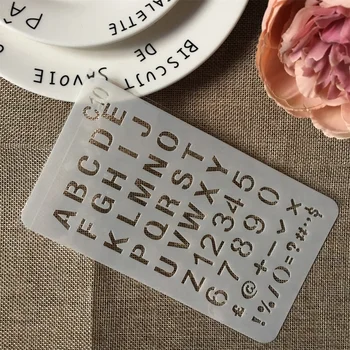 PALETTE
BISCUIT DE
SAVOIE
PÂ
C10
ABCDE
FGHIJ
KLMNO
PQRST
UVWXY
Z12345
67890
£@+-×
!%/()=?#$